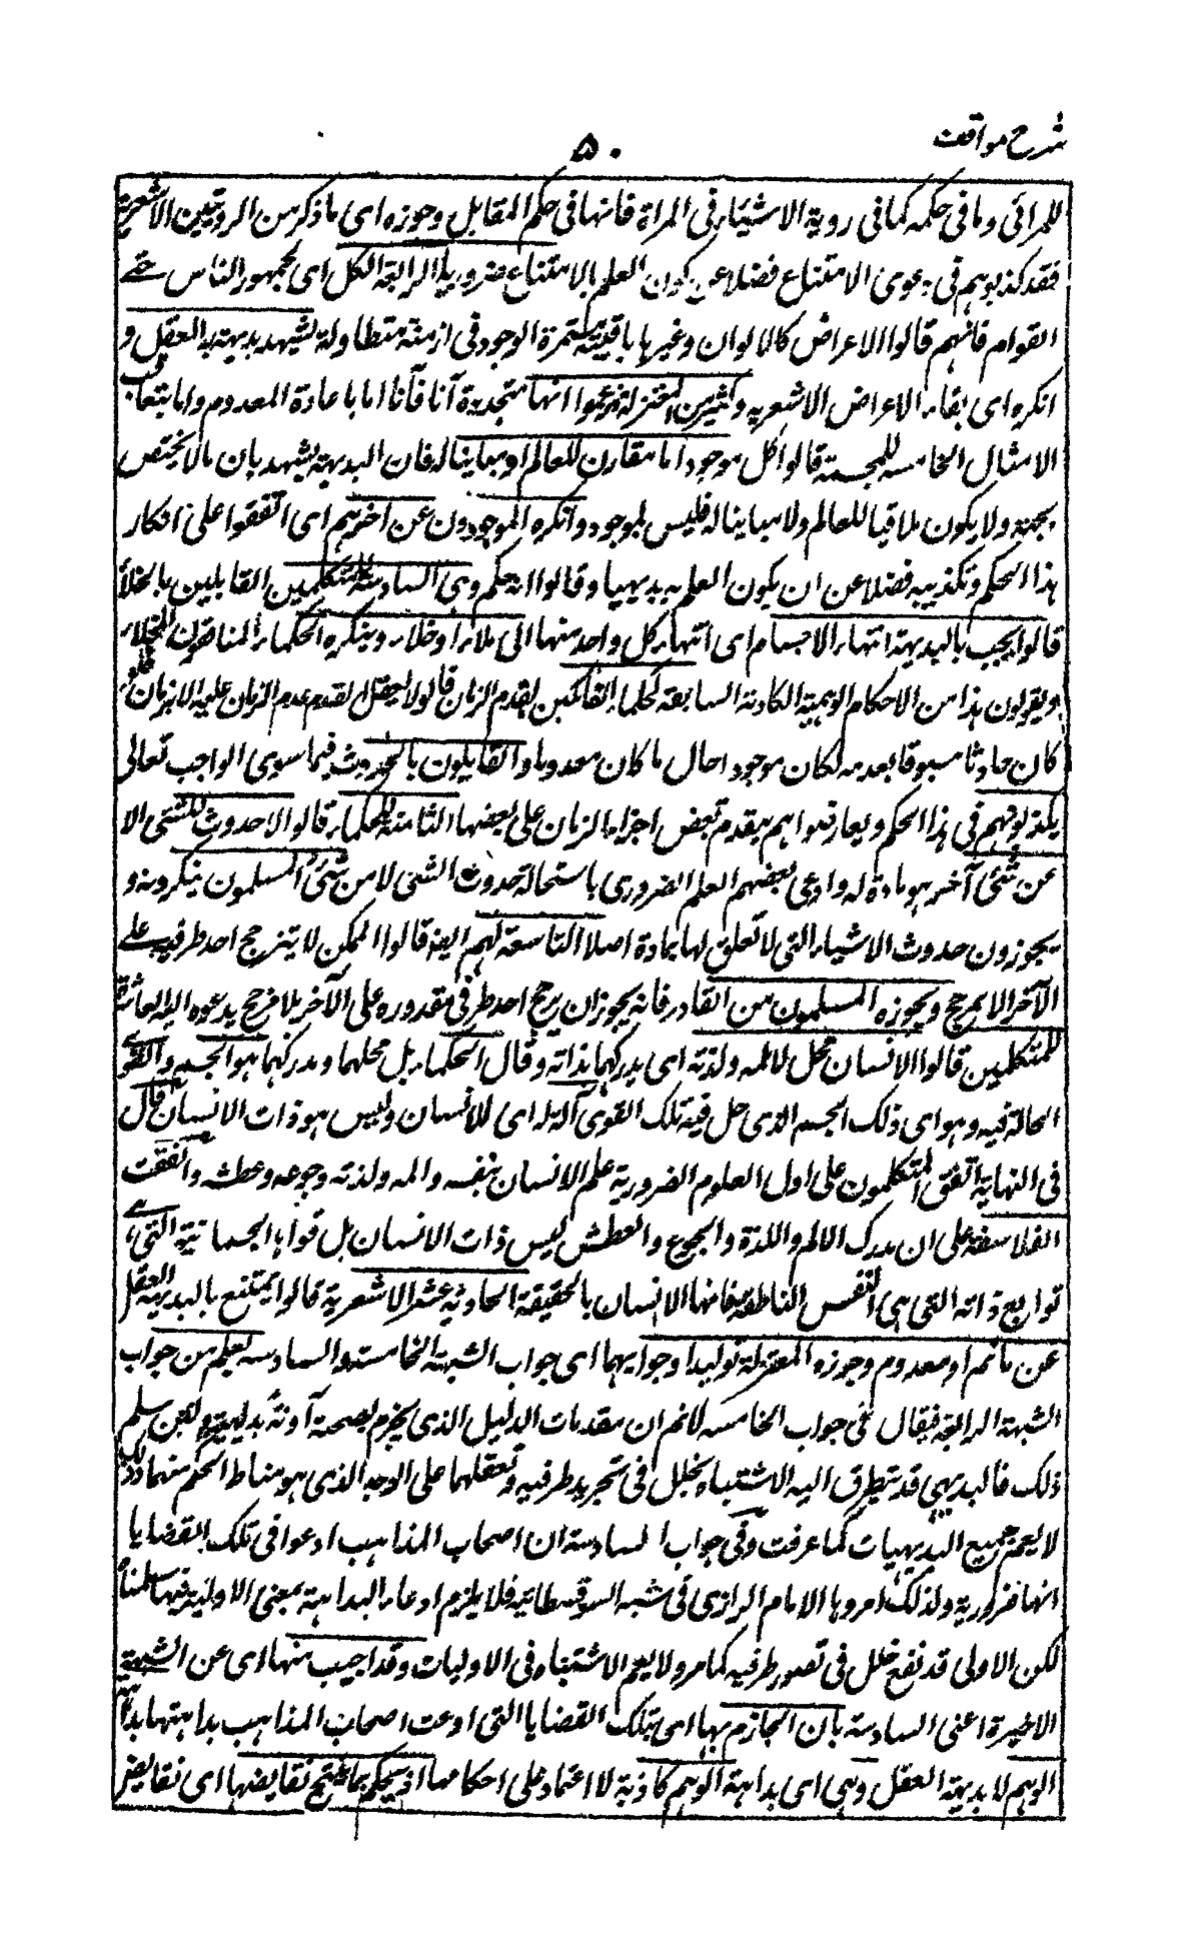 شرح مواقف
۵۰
للمرائی وما فی حکمه کما فی رویة الاشیاء فی المراة فانها فی حکم المقابل وجوزه ای ما ذکر من الرویتین الاشعریة
فقد کذبوهم فی دعوی الامتناع فضلا عن کون العلم بالامتناع ضروریا الرابعة الکل ای لجمهور الناس حتے
القوام فانهم قالوا الاعراض کالالوان وغیرها باقیة مستمرة الوجود فی ازمنة متطاولة یشهد بدیهة العقل و
انکره ای بقاء الاعراض الاشعریه وکثیر من المعتزلة زعموا انها متجددة آنا فآنا اما باعادة المعدوم واما بتعاقب
الامثال الخامسه للمجسمة قالوا کل موجود اما مقارن للعالم او مباینا له فان البدیهة یشهد بان مالا یختص
بجهة ولا یکون ملاقیا للعالم ولا مباینا له فلیس بموجود وانکره الموجودون عن اخرهم ای اتفقوا علی انکار
هذا الحکم وتکذیبه فضلا عن ان یکون العلم به بدیهیا وقالوا انه حکم وهمی السادسة للمتکلمین القایلین بالخلأ
قالوا یجب بالبدیهة انتهاء الاجسام ای انتهاء کل واحد منها الی ملاء او خلاء وینکره الحکماء المنافون للخلاء
ویقولون هذا من الاحکام الوهمیة الکاذبة السابعة لحکماء القائلین بقدم الزمان قالوا لا یعقل تقدم عدم الزمان علیه الا بزمان فلو
کان حادثا مسبوقا بعدمه لکان موجودا حال ما کان معدوما والقایلون بالحدوث فیما سوی الواجب تعالی
یکذبونهم فی هذا الحکم ویعارضونهم بتقدم بعض اجزاء الزمان علی بعضها الثامنة للحکماء قالوا لا حدوث للشئ الا
عن شئ آخر هو مادة له وادعی بعضهم العلم الضروری باستحالة حدوث الشئ لا من شئ المسلمون ینکرونه و
یجوزون حدوث الاشیاء التی لا تعلق لها بمادة اصلا التاسعة لهم ایضا قالوا الممکن لا یترجح احد طرفیه علے
الآخر الا بمرجح ویجوزه المسلمون من القادر فانه یجوز ان یرجح احد طرفی مقدوره علی الآخر بلا مرجح یدعوه الیه العاشرة
للمتکلمین قالوا الانسان محل لالمه ولذته ای یدرکهما بذاته وقال الحکماء بل محلهما ومدرکهما هو الجسم والقوی
الحالة فیه وهو ای ذلک الجسم الذی حل فیه تلک القوی آلة له ای للانسان ولیس هو ذات الانسان قال
فی النهایة اتفق المتکلمون علی اول العلوم الضروریة علم الانسان بنفسه والمه ولذته وجوعه وعطشه واتفقت
الفلاسفة علی ان مدرک الالم واللذة والجوع والعطش لیس ذات الانسان بل قواه الجسمانیة التی ہے
توابع ذاته التی هی النفس الناطقة فانها الانسان بالحقیقة الحادیة عشر الاشعریة قالوا یمتنع بالبدیهة الفعل
عن نائم او معدوم وجوزه المعتزلة تولیدا وجوابهما ای جواب الشبهة الخامسة والسادسة یعلم من جواب
الشبهة الرابعة فیقال فی جواب الخامسه لا نم ان مقدمات الدلیل الذی یجزم بصحته آونة بدیهیة ولئن سلم
ذلک فالبدیهی قد یتطرق الیه الاشتباه لخلل فی تجرید طرفیه وتعقلهما علی الوجه الذی هو مناط الحکم منهما وذلک
لا یعم جمیع البدیهیات کما عرفت وفی جواب السادسة ان اصحاب المذاهب ادعوا فی تلک القضایا
انها ضروریة ولذلک امروها الامام الرازی فی شبه السوفسطائیه فلا یلزم ادعاء البداهة بمعنی الاولیة فیها سلمناه
لکن الاولی قد یقع خلل فی تصور طرفیه کما مر ولا یعم الاشتباه فی الاولیات وقد اجیب منها ای عن الشبهة
الاخیرة اعنی السادسة بان الجازم بها ای بتلک القضایا التی ادعت اصحاب المذاهب بداهتها بداهة
الوهم لا بدیهة العقل وهی ای بداهة الوهم کاذبة لا اعتماد علی احکامها اذ یحکم بما ینتج نقایضها ای نقایض